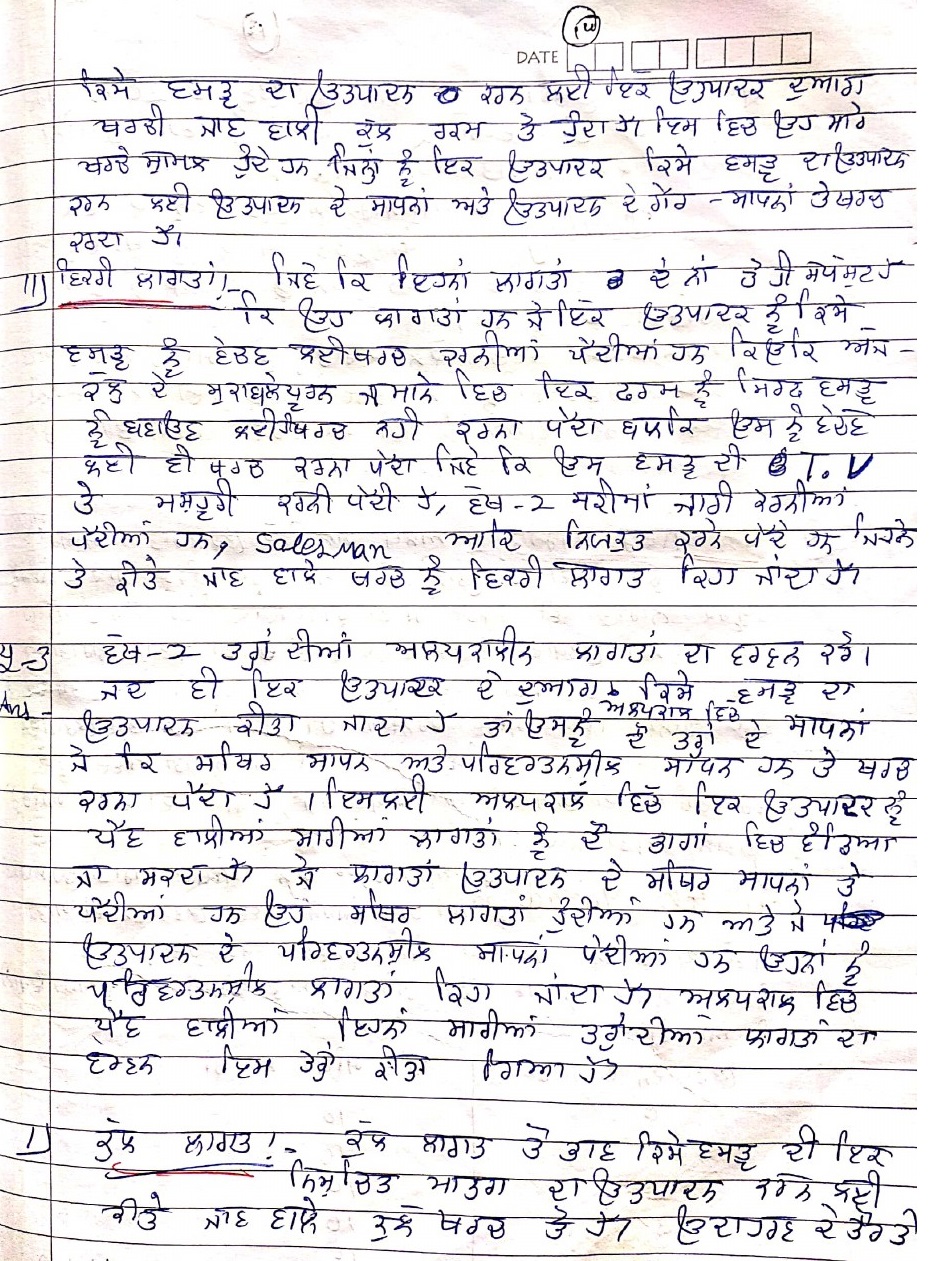 DATE
ਕਿਸੇ ਵਸਤੂ ਦਾ ਉਤਪਾਦਨ ਕਰਨ ਲਈ ਇਕ ਉਤਪਾਦਕ ਦੁਆਰਾ
ਖਰਚੀ ਜਾਣ ਵਾਲੀ ਕੁੱਲ ਰਕਮ ਤੋਂ ਹੁੰਦਾ ਹੈ। ਇਸ ਵਿਚ ਉਹ ਸਾਰੇ
ਖਰਚੇ ਸ਼ਾਮਲ ਹੁੰਦੇ ਹਨ ਜਿਨ੍ਹਾਂ ਨੂੰ ਇਕ ਉਤਪਾਦਕ ਕਿਸੇ ਵਸਤੂ ਦਾ ਉਤਪਾਦਨ
ਕਰਨ ਲਈ ਉਤਪਾਦਨ ਦੇ ਸਾਧਨਾਂ ਅਤੇ ਉਤਪਾਦਨ ਦੇ ਗੈਰ - ਸਾਧਨਾਂ ਤੇ ਖਰਚ
ਕਰਦਾ ਹੈ।
III) ਵਿਕਰੀ ਲਾਗਤਾਂ!- ਜਿਵੇਂ ਕਿ ਇਹਨਾਂ ਲਾਗਤਾਂ ਦੇ ਨਾਂ ਤੋਂ ਹੀ ਸਪੱਸ਼ਟ ਹੈ
ਕਿ ਉਹ ਲਾਗਤਾਂ ਹਨ ਜੋ ਇਕ ਉਤਪਾਦਕ ਨੂੰ ਕਿਸੇ
ਵਸਤੂ ਨੂੰ ਵੇਚਣ ਲਈ ਖਰਚ ਕਰਨੀਆਂ ਪੈਂਦੀਆਂ ਹਨ ਕਿਉਂਕਿ ਅੱਜ -
ਕੱਲ੍ਹ ਦੇ ਮੁਕਾਬਲੇਪੂਰਨ ਜਮਾਨੇ ਵਿਚ ਇਕ ਫਰਮ ਨੂੰ ਸਿਰਫ ਵਸਤੂ
ਨੂੰ ਬਣਾਉਣ ਲਈ ਹੀ ਖਰਚ ਨਹੀ ਕਰਨਾ ਪੈਂਦਾ ਬਲਕਿ ਉਸ ਨੂੰ ਵੇਚਣ
ਲਈ ਵੀ ਖਰਚ ਕਰਨਾ ਪੈਂਦਾ ਜਿਵੇਂ ਕਿ ਉਸ ਵਸਤੂ ਦੀ T.V
ਤੇ ਮਸ਼ਹੂਰੀ ਕਰਨੀ ਪੈਂਦੀ ਹੈ, ਵੱਖ-2 ਸਕੀਮਾਂ ਜਾਰੀ ਕਰਨੀਆਂ
ਪੈਂਦੀਆਂ ਹਨ, Salesman ਆਦਿ ਨਿਯੁਕਤ ਕਰਨੇ ਪੈਂਦੇ ਹਨ
ਤੇ ਕੀਤੇ ਜਾਣ ਵਾਲੇ ਖਰਚ ਨੂੰ ਵਿਕਰੀ ਲਾਗਤ ਕਿਹਾ ਜਾਂਦਾ ਹੈ।
ਪ੍ਰ-3 ਵੱਖ-2 ਤਰ੍ਹਾਂ ਦੀਆਂ ਅਲਪਕਾਲੀਨ ਲਾਗਤਾਂ ਦਾ ਵਰਣਨ ਕਰੋ।
Ans- ਜਦ ਵੀ ਇਕ ਉਤਪਾਦਕ ਦੇ ਦੁਆਰਾ ਕਿਸੇ ਵਸਤੂ ਦਾ
ਅਲਪਕਾਲ ਵਿਚ
ਉਤਪਾਦਨ ਕੀਤਾ ਜਾਂਦਾ ਹੈ ਤਾਂ ਉਸਨੂੰ ਦੋ ਤਰ੍ਹਾਂ ਦੇ ਸਾਧਨਾਂ
ਜੋ ਕਿ ਸਥਿਰ ਸਾਧਨ ਅਤੇ ਪਰਿਵਰਤਨਸ਼ੀਲ ਸਾਧਨ ਹਨ ਤੇ ਖਰਚ
ਕਰਨਾ ਪੈਂਦਾ ਹੈ। ਇਸਲਈ ਅਲਪਕਾਲ ਵਿਚ ਇਕ ਉਤਪਾਦਕ ਨੂੰ
ਪੈਣ ਵਾਲੀਆਂ ਸਾਰੀਆਂ ਲਾਗਤਾਂ ਨੂੰ ਦੋ ਭਾਗਾਂ ਵਿਚ ਵੰਡਿਆ
ਜਾ ਸਕਦਾ ਹੈ। ਜੋ ਲਾਗਤਾਂ ਉਤਪਾਦਨ ਦੇ ਸਥਿਰ ਸਾਧਨਾਂ ਤੇ
ਪੈਂਦੀਆਂ ਹਨ ਉਹ ਸਥਿਰ ਲਾਗਤਾਂ ਹੁੰਦੀਆਂ ਹਨ ਅਤੇ ਜੋ
ਉਤਪਾਦਨ ਦੇ ਪਰਿਵਰਤਨਸ਼ੀਲ ਸਾਧਨਾਂ ਪੈਂਦੀਆਂ ਹਨ ਉਹਨਾਂ ਨੂੰ
ਪਰਿਵਰਤਨਸ਼ੀਲ ਲਾਗਤਾਂ ਕਿਹਾ ਜਾਂਦਾ ਹੈ। ਅਲਪਕਾਲ ਵਿਚ
ਪੈਣ ਵਾਲੀਆਂ ਇਹਨਾਂ ਸਾਰੀਆਂ ਤਰ੍ਹਾਂ ਦੀਆਂ ਲਾਗਤਾਂ ਦਾ
ਵਰਣਨ ਇਸ ਤਰ੍ਹਾਂ ਕੀਤਾ ਗਿਆ ਹੈ।
I) ਕੁੱਲ ਲਾਗਤ!- ਕੁੱਲ ਲਾਗਤ ਤੋਂ ਭਾਵ ਕਿਸੇ ਵਸਤੂ ਦੀ ਇਕ
ਨਿਸ਼ਚਿਤ ਮਾਤਰਾ ਦਾ ਉਤਪਾਦਨ ਕਰਨ ਲਈ
ਕੀਤੇ ਜਾਣ ਵਾਲੇ ਕੁਲ ਖਰਚ ਤੋਂ ਹੈ। ਉਦਾਹਰਣ ਦੇ ਤੌਰ ਤੇ